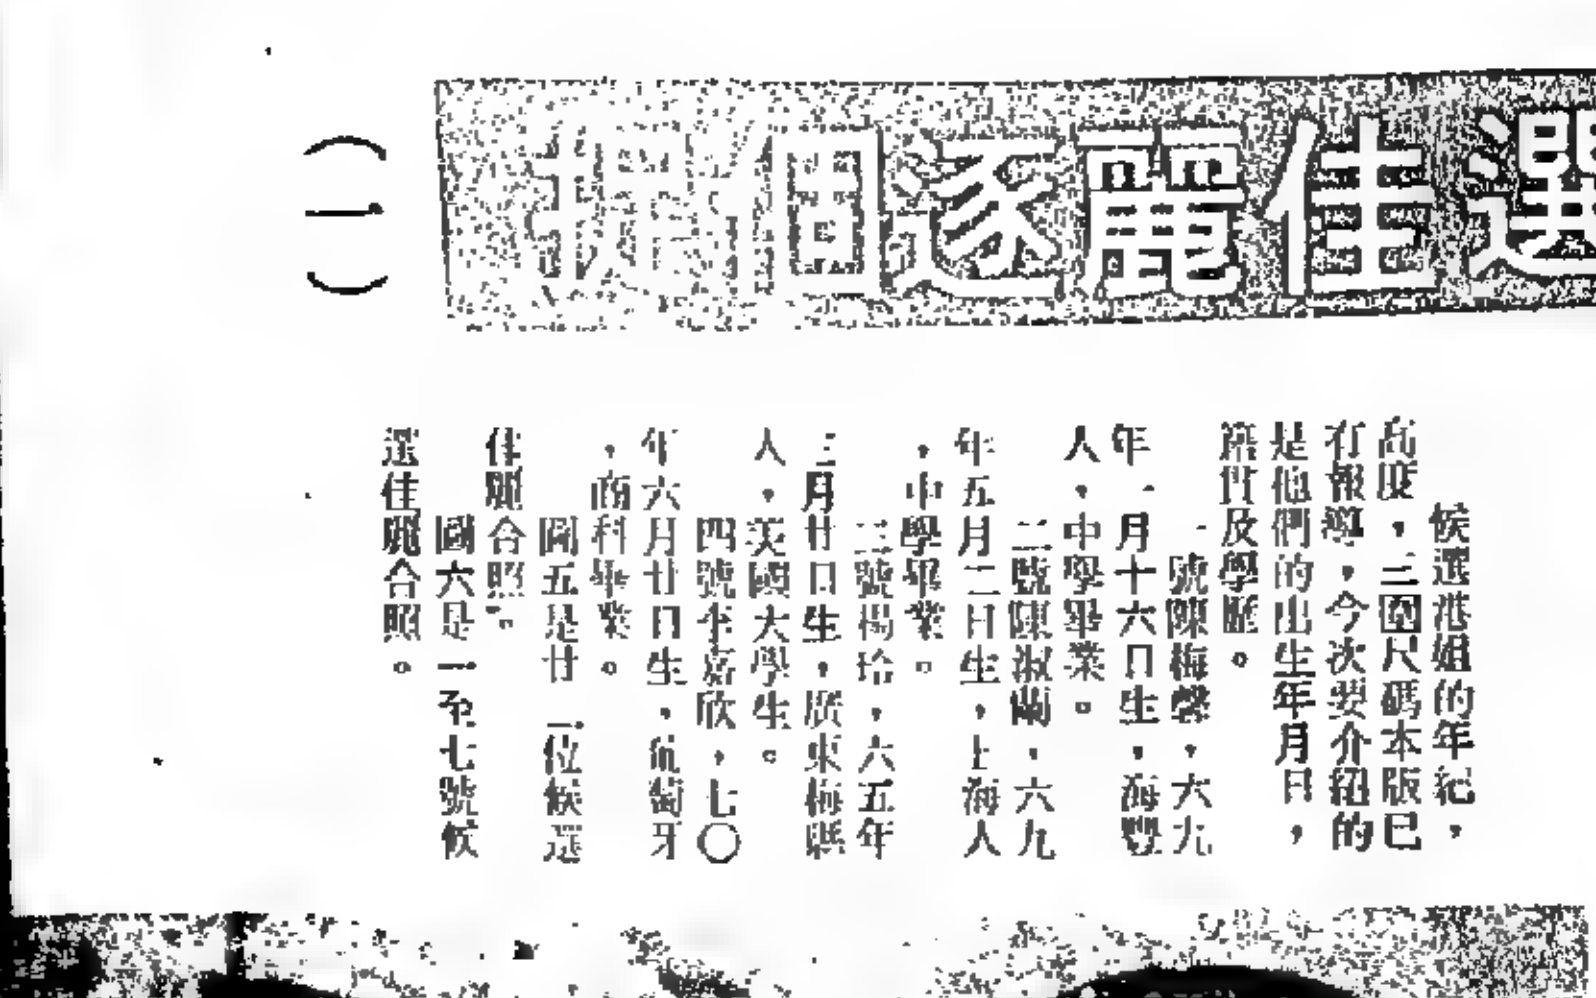 選佳麗逐個捉
(一)
候選港姐的年紀，
高度，三圍尺碼本版已
有報導，今次要介紹的
是他們的出生年月日，
籍貫及學歷。
一號陳梅馨，六九
年一月十六日生，海豐
人，中學畢業。
二號陳淑蘭，六九
年五月二日生，上海人
，中學畢業。
三號楊玲，六五年
三月廿日生，廣東梅縣
人，英國大學生。
四號李嘉欣，七〇
年六月廿日生，葡萄牙
，商科畢業。
圖五是廿二位候選
佳麗合照。
圖六是一至七號候
選佳麗合照。